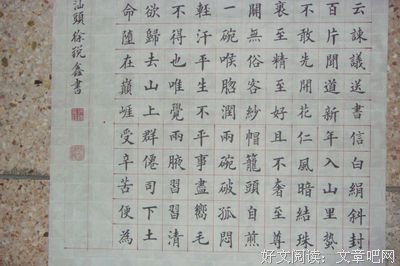 云諫議送書信白絹斜封
百片聞道新年入山里蟄
不敢先開花仁風暗結珠
裹至精至好且不奢至尊
開無俗客紗帽籠頭自煎
一碗喉吻潤兩碗破孤悶
輕汗平生不平事盡嚮毛
不得也唯覺兩腋習習清
欲歸去山上群僊司下土
命墮在巔崖受辛苦便為
汕頭徐鋭鑫書
好文阅读：文章吧网